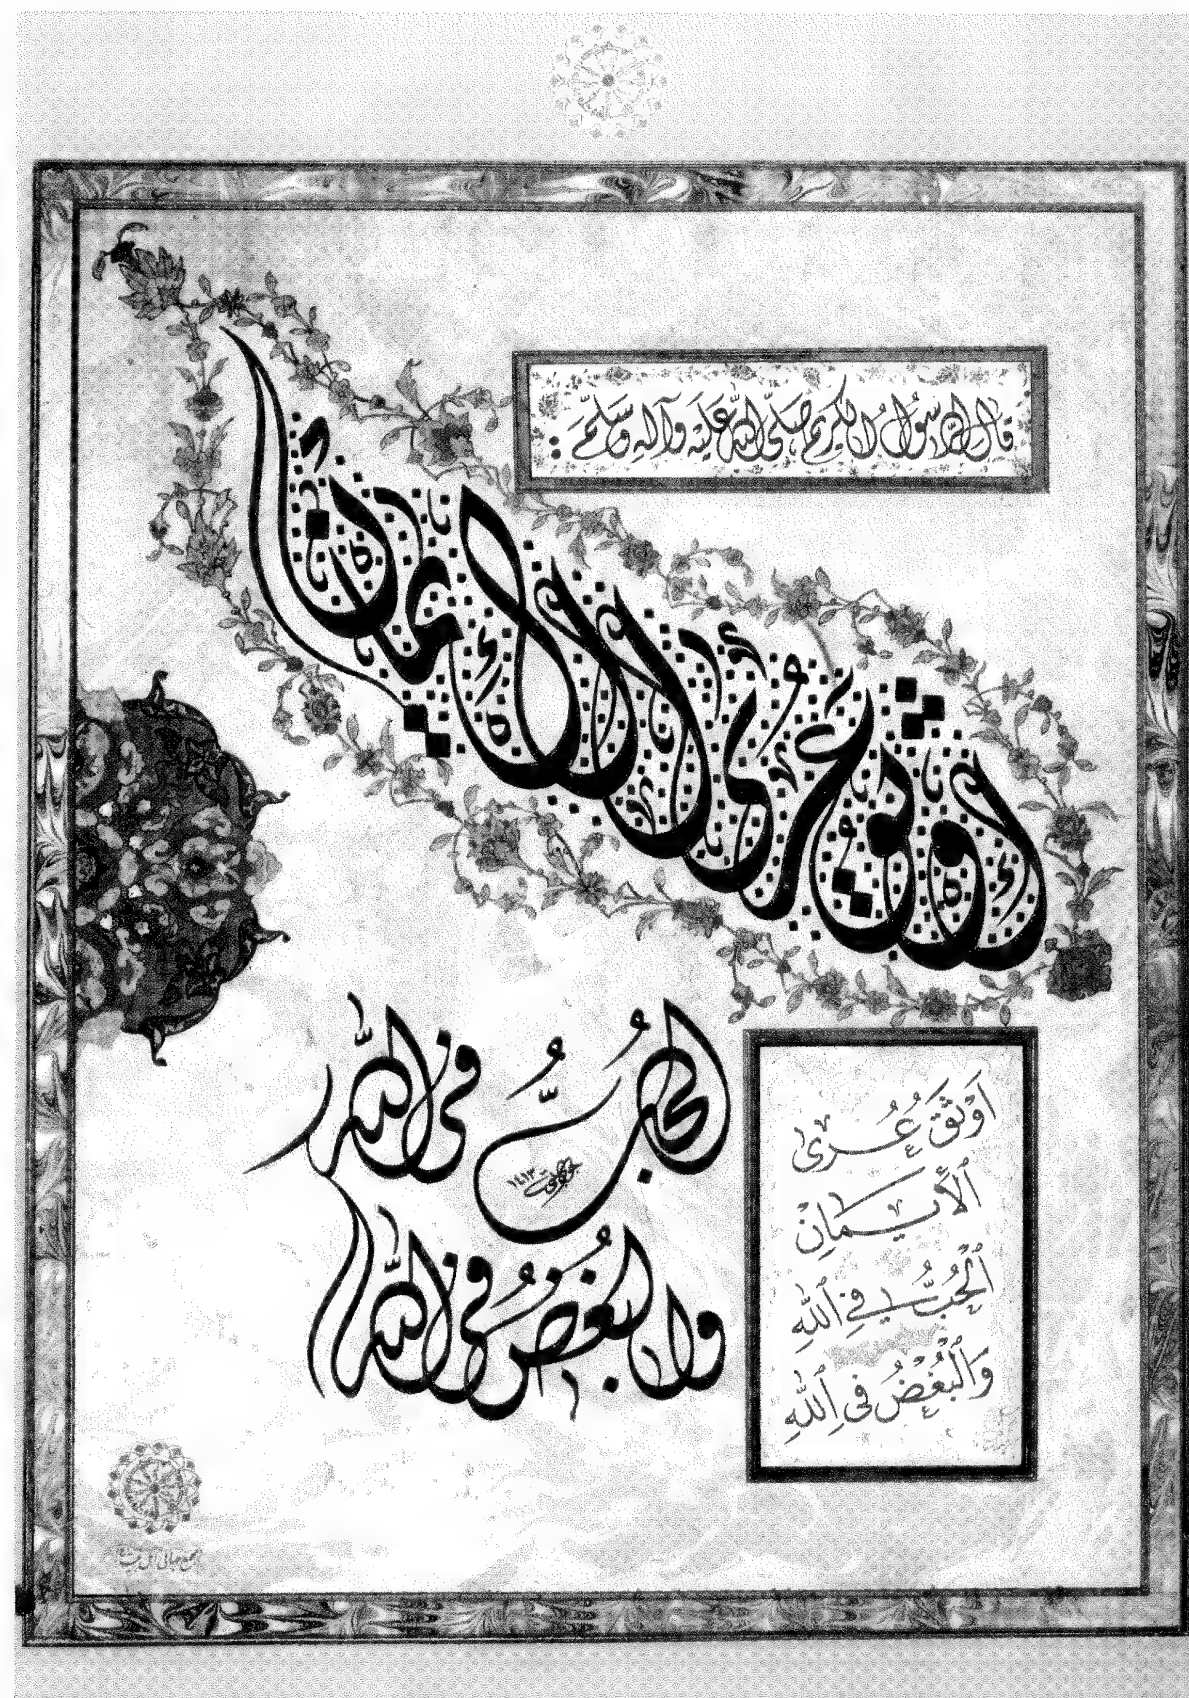 قال الرسول الكريم صلى الله عليه وآله وسلم
أوثق عرى الإيمان
الحب في الله
١٤١٣
والبغض في الله
اَوْثَقُ عُرى
ٱلْأيمانِ
ٱلْحُبُّ فِي ٱللهِ
وَٱلْبُغْضُ فِي ٱللهِ